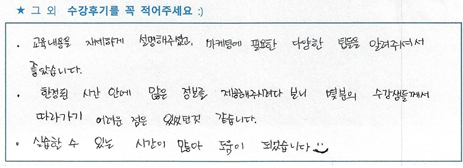 ★ 그 외 수강후기를 꼭 적어주세요 :)
· 교육내용을 자세하게 설명해주셨고, 마케팅에 필요한 다양한 팁들을 알려주셔서
좋았습니다.
· 한정된 시간 안에 많은 정보를 제공해주시려다 보니 몇분의 수강생들께서
따라가기 어려운 점은 있었던것 같습니다.
· 실습할 수 있는 시간이 많아 도움이 되었습니다